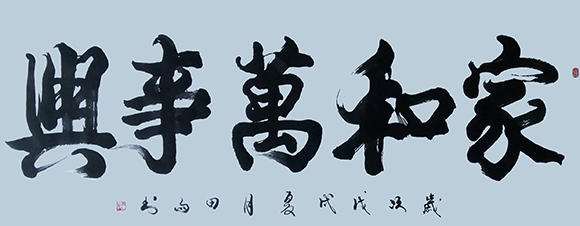 家和萬事興
歲次戊戌夏月田